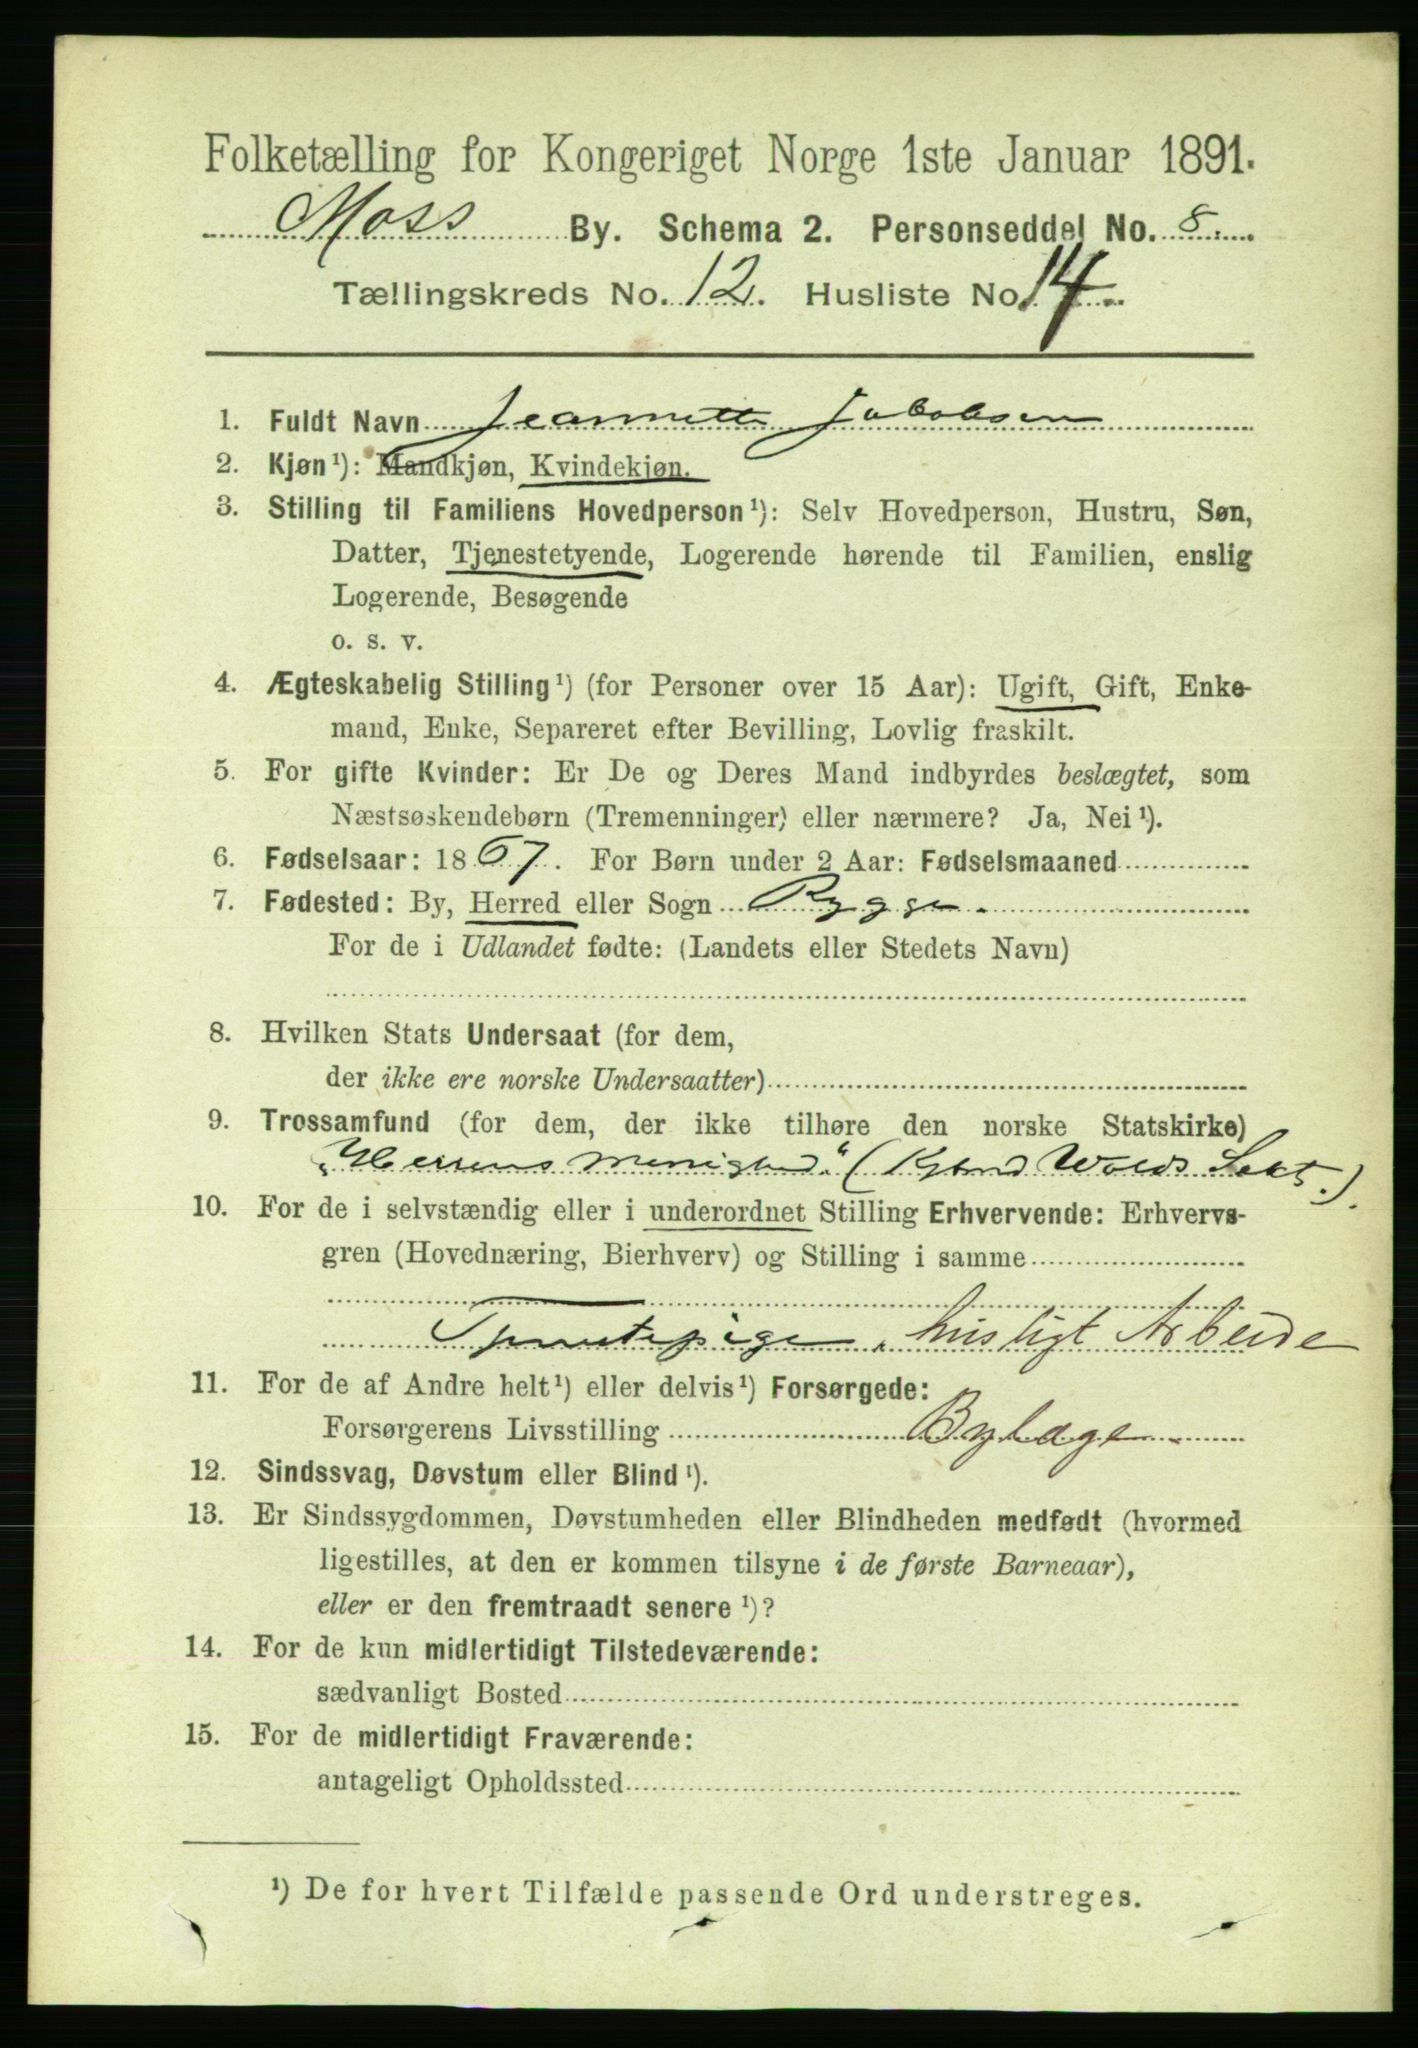 Folketælling for Kongeriget Norge 1ste Januar 1891.
Moss By. Schema 2. Personseddel No. 8.
Tællingskreds No. 12. Husliste No. 14
1. Fuldt Navn Jeannette Jakobsen
2. Kjøn¹): Mandkjøn, Kvindekjøn.
3. Stilling til Familiens Hovedperson¹): Selv Hovedperson, Hustru, Søn,
Datter, Tjenestetyende, Logerende hørende til Familien, enslig
Logerende, Besøgende
o. s. v.
4. Ægteskabelig Stilling¹) (for Personer over 15 Aar): Ugift, Gift, Enke-
mand, Enke, Separeret efter Bevilling, Lovlig fraskilt.
5. For gifte Kvinder: Er De og Deres Mand indbyrdes beslægtet, som
Næstsøskendebørn (Tremenninger) eller nærmere? Ja, Nei¹).
6. Fødselsaar: 1867. For Børn under 2 Aar: Fødselsmaaned
7. Fødested: By, Herred eller Sogn Rygge.
For de i Udlandet fødte: (Landets eller Stedets Navn)
8. Hvilken Stats Undersaat (for dem,
der ikke ere norske Undersaatter)
9. Trossamfund (for dem, der ikke tilhøre den norske Statskirke)
„Herrens Menighed." ( Wolds Sekt.).
10. For de i selvstændig eller i underordnet Stilling Erhvervende: Erhvervs-
gren (Hovednæring, Bierhverv) og Stilling i samme
husligt Arbeide
11. For de af Andre helt¹) eller delvis¹) Forsørgede:
Forsørgerens Livsstilling Bylæge
12. Sindssvag, Døvstum eller Blind¹).
13. Er Sindssygdommen, Døvstumheden eller Blindheden medfødt (hvormed
ligestilles, at den er kommen tilsyne i de første Barneaar),
eller er den fremtraadt senere¹)?
14. For de kun midlertidigt Tilstedeværende:
sædvanligt Bosted
15. For de midlertidigt Fraværende:
antageligt Opholdssted
¹) De for hvert Tilfælde passende Ord understreges.